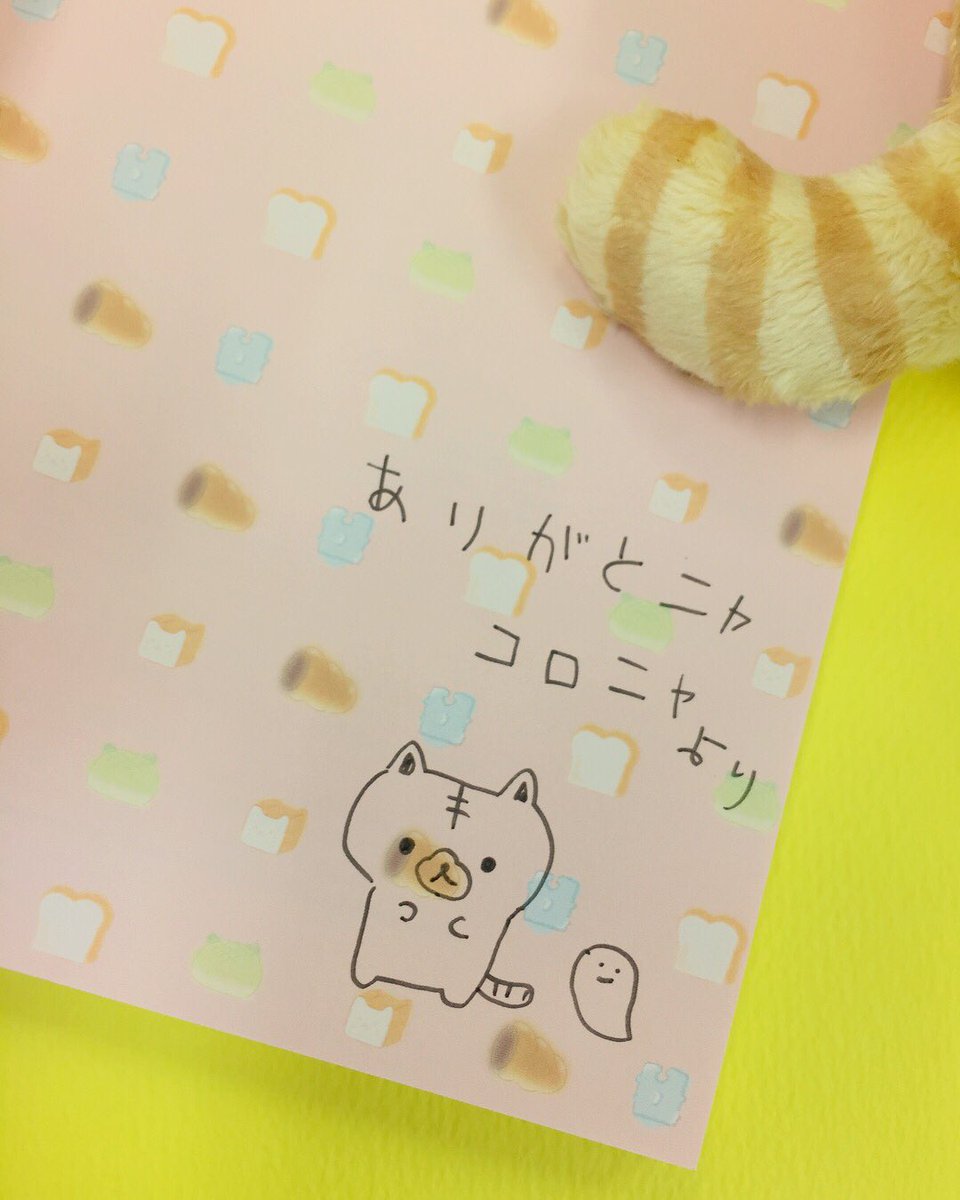 ありがとニャ
コロニャ
より